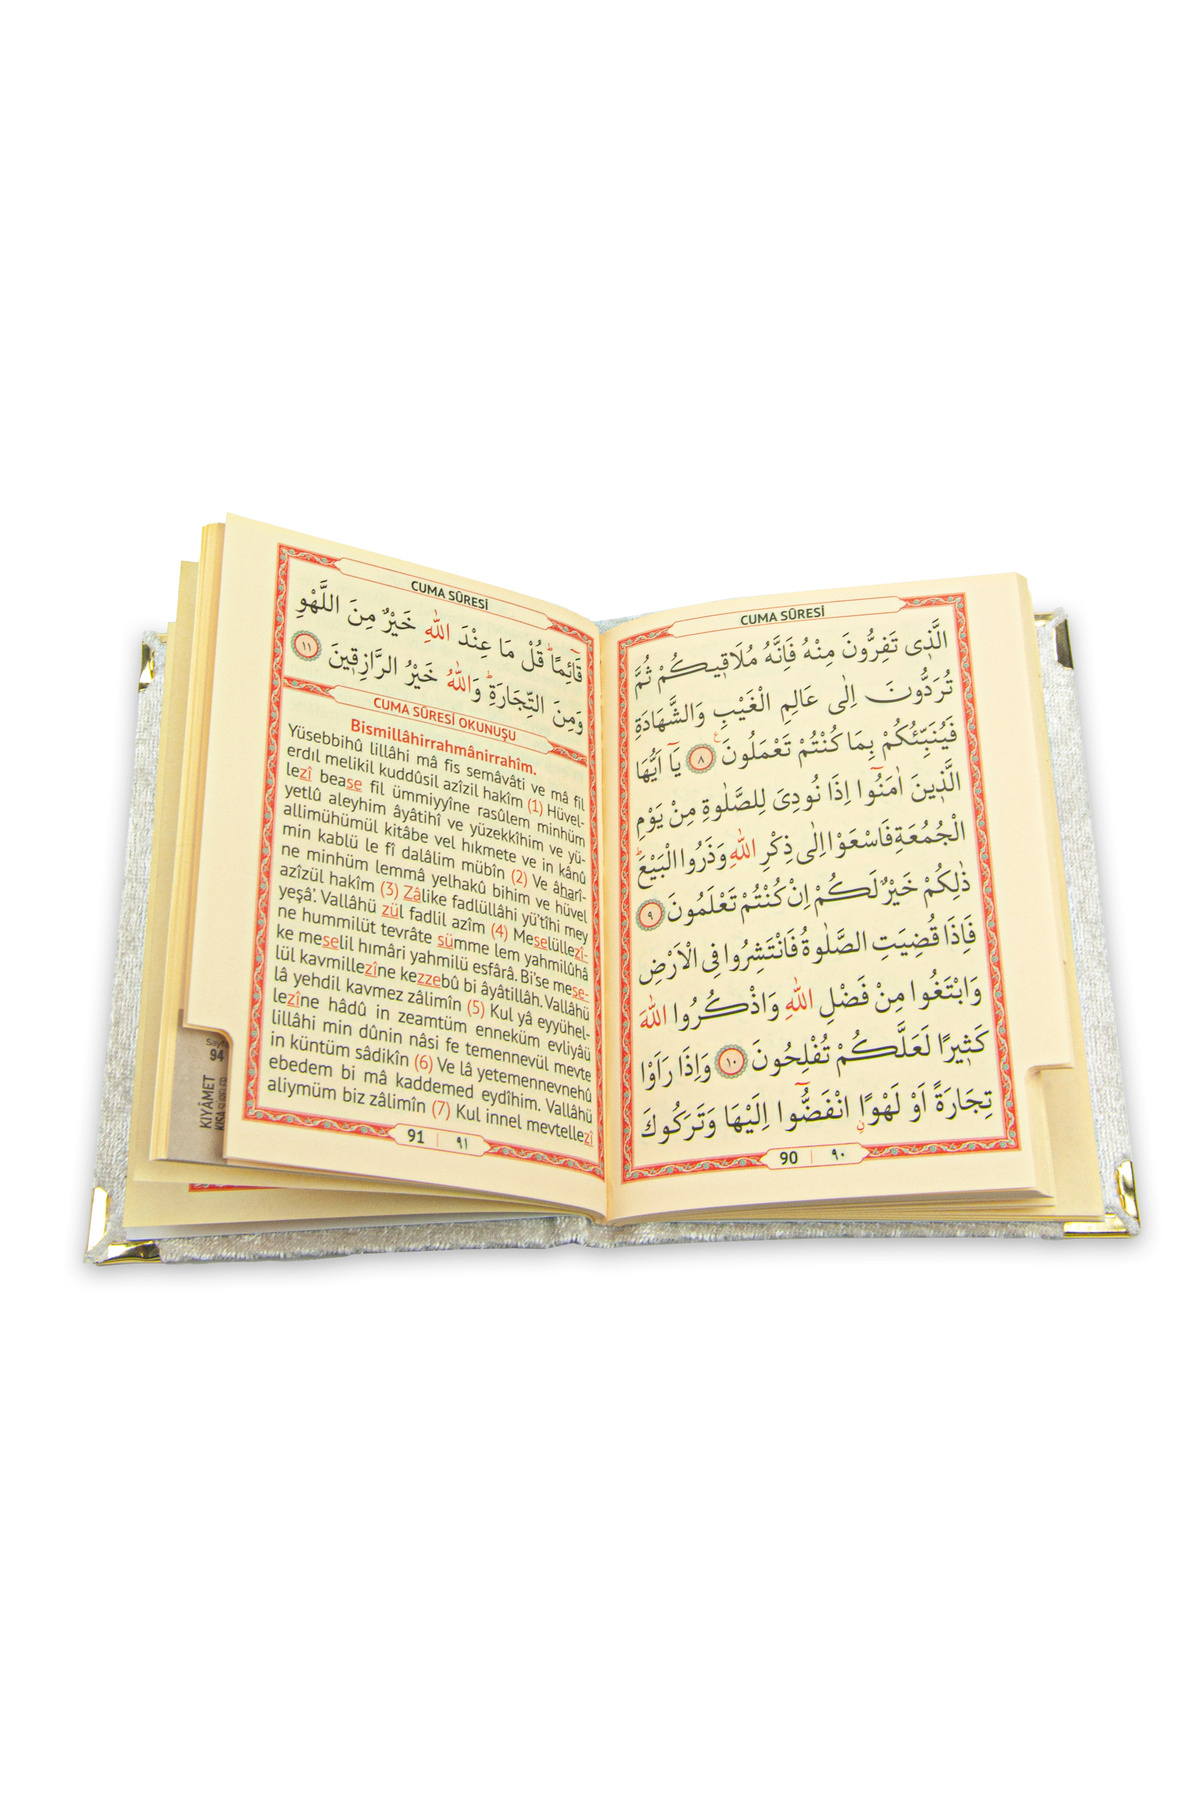 CUMA SÛRESİ
الَّذ۪ي تَفِرُّونَ مِنْهُ فَاِنَّهُ مُلَاق۪يكُمْ ثُمَّ
تُرَدُّونَ اِلٰى عَالِمِ الْغَيْبِ وَالشَّهَادَةِ
فَيُنَبِّئُكُمْ بِمَا كُنْتُمْ تَعْمَلُونَ ٨ يَٓا اَيُّهَا
الَّذ۪ينَ اٰمَنُٓوا اِذَا نُودِيَ لِلصَّلٰوةِ مِنْ يَوْمِ
الْجُمُعَةِ فَاسْعَوْا اِلٰى ذِكْرِ اللّٰهِ وَذَرُوا الْبَيْعَۜ
ذٰلِكُمْ خَيْرٌ لَكُمْ اِنْ كُنْتُمْ تَعْلَمُونَ ٩
فَاِذَا قُضِيَتِ الصَّلٰوةُ فَانْتَشِرُوا فِي الْاَرْضِ
وَابْتَغُوا مِنْ فَضْلِ اللّٰهِ وَاذْكُرُوا اللّٰهَ
كَث۪يرًا لَعَلَّكُمْ تُفْلِحُونَ ١٠ وَاِذَا رَاَوْا
تِجَارَةً اَوْ لَهْوًاۨ انْفَضُّٓوا اِلَيْهَا وَتَرَكُوكَ
90 | ٩٠
CUMA SÛRESİ
قَٓائِمًاۜ قُلْ مَا عِنْدَ اللّٰهِ خَيْرٌ مِنَ اللَّهْوِ
وَمِنَ التِّجَارَةِۜ وَاللّٰهُ خَيْرُ الرَّازِق۪ينَ ١١
CUMA SÛRESİ OKUNUŞU
Bismillâhirrahmânirrahîm.
Yüsebbihû lillâhi mâ fis semâvâti ve mâ fil
erdıl melikil kuddûsil azîzil hakîm (1) Hüvel-
lezî bease fil ümmiyyîne rasûlem minhüm
yetlû aleyhim âyâtihî ve yüzekkîhim ve yü-
allimühümül kitâbe vel hıkmete ve in kânû
min kablü le fî dalâlim mübîn (2) Ve âharî-
ne minhüm lemmâ yelhakû bihim ve hüvel
azîzül hakîm (3) Zâlike fadlüllâhi yü'tîhi mey
yeşâ'. Vallâhü zül fadlil azîm (4) Meselüllezî-
ne hummilüt tevrâte sümme lem yahmilûhâ
ke meselil hımâri yahmilü esfârâ. Bi'se mese-
lül kavmillezîne kezzebû bi âyâtillâh. Vallâhü
lâ yehdil kavmez zâlimîn (5) Kul yâ eyyühel-
lezîne hâdû in zeamtüm enneküm evliyâü
lillâhi min dûnin nâsi fe temennevül mevte
in küntüm sâdikîn (6) Ve lâ yetemennevnehû
ebedem bi mâ kaddemed eydîhim. Vallâhü
aliymüm biz zâlimîn (7) Kul innel mevtellezî
91 | ٩١
94
KIYÂMET